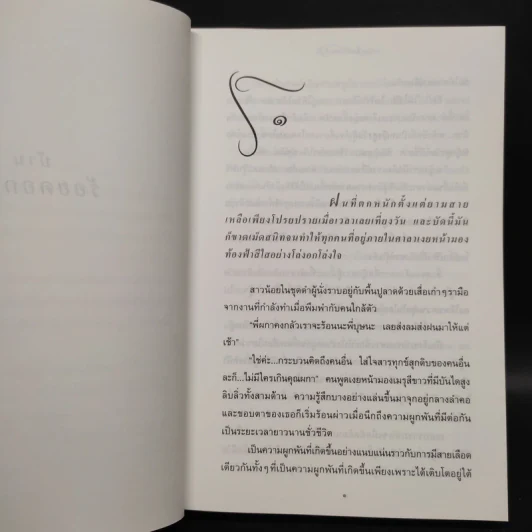 ๑
ฝนที่ตกหนักตั้งแต่ยามสาย
เหลือเพียงโปรยปรายเมื่อเวลาเลยเที่ยงวัน และบัดนี้มัน
ก็ขาดเม็ดสนิทจนทำให้ทุกคนที่อยู่ภายในศาลาเงยหน้ามอง
ท้องฟ้าสีใสอย่างโล่งอกโล่งใจ
สาวน้อยในชุดดำผู้นั่งราบอยู่กับพื้นปูลาดด้วยเสื่อเก่าๆรามือ
จากงานที่กำลังทำเมื่อพึมพำกับคนใกล้ตัว
"พี่ผกาคงกลัวเราจะร้อนนะพี่บุษนะ เลยส่งลมส่งฝนมาให้แต่
เช้า"
"ใช่ค่ะ...กระบวนคิดถึงคนอื่น ใส่ใจสารทุกข์สุกดิบของคนอื่น
ละก็...ไม่มีใครเกินคุณผกา" คนพูดเงยหน้ามองเมรุสีขาวที่มีบันไดสูง
ลิบลิ่วทั้งสามด้าน ความรู้สึกบางอย่างแล่นขึ้นมาจุกอยู่กลางลำคอ
และขอบตาของเธอก็เริ่มร้อนผ่าวเมื่อนึกถึงความผูกพันที่มีต่อกัน
เป็นระยะเวลายาวนานชั่วชีวิต
เป็นความผูกพันที่เกิดขึ้นอย่างแนบแน่นราวกับการมีสายเลือด
เดียวกันทั้งๆที่เป็นความผูกพันที่เกิดขึ้นเพียงเพราะได้เติบโตอยู่ใต้